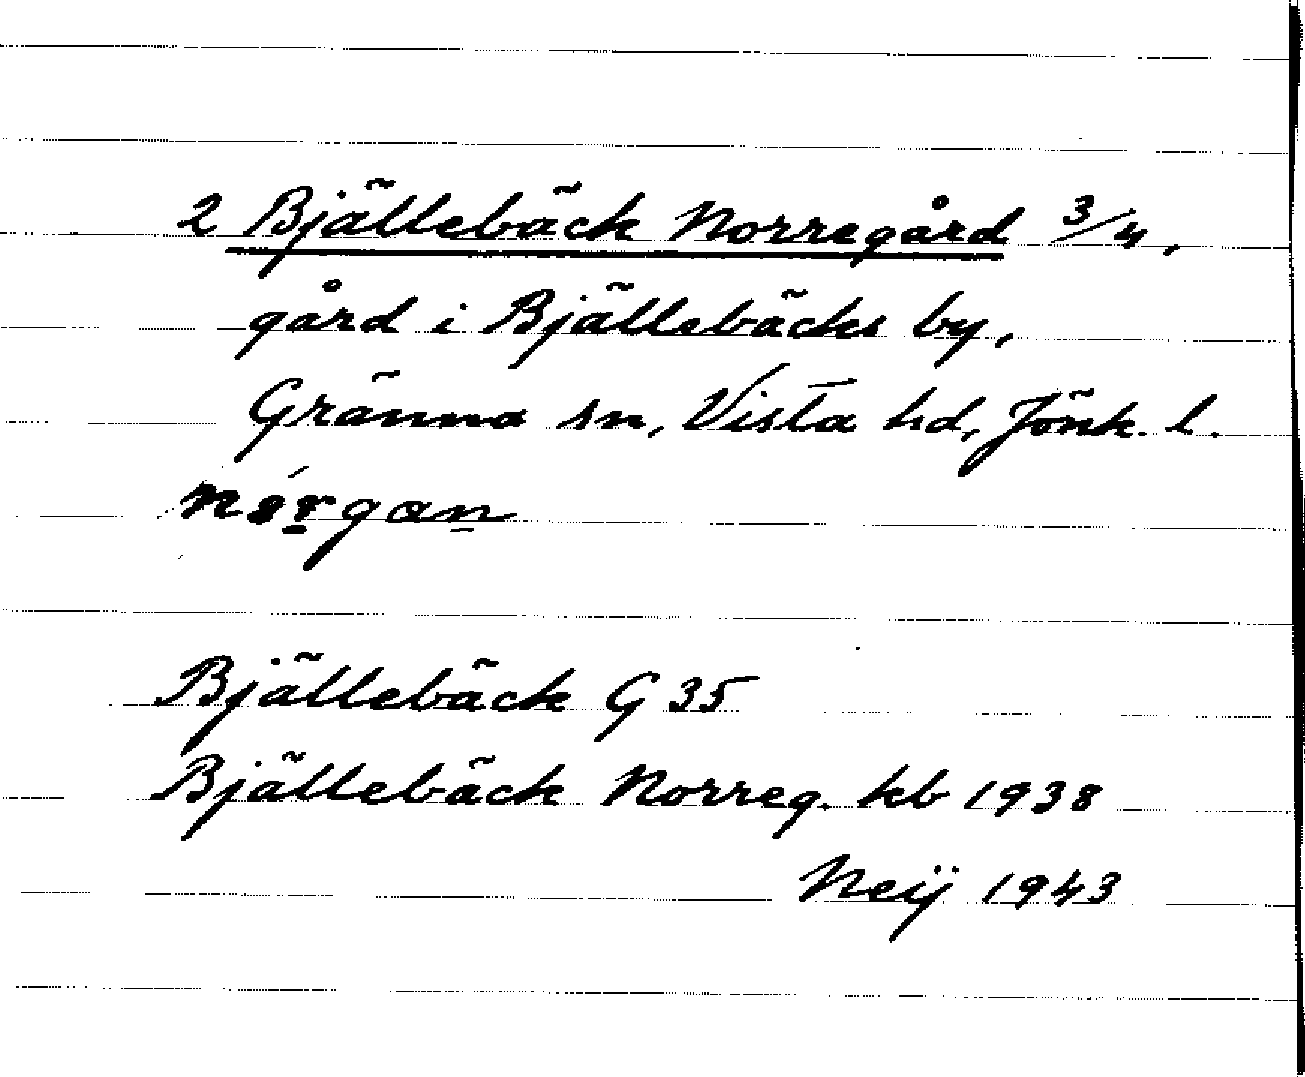 2 Bjällebäck Norregård 3/4,
gård i Bjällebäcks by,
Gränna sn, Vista hd, Jönk. l.
Bjällebäck G 35
Bjällebäck Norreg. kb 1938
Neij 1943